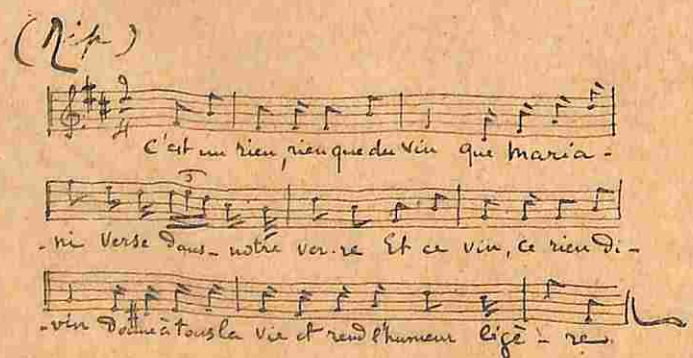 (Rip)
C'est un rien, rien que du vin que Maria-
-ni verse dans notre ver-re Et ce vin, ce rien di-
-vin Donne à tous la vie et rend l'humeur légè-re.